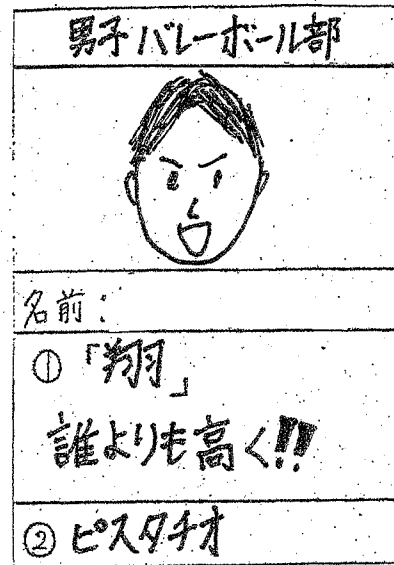 男子バレーボール部
名前:
①「翔」
誰よりも高く!!
②ピスタチオ